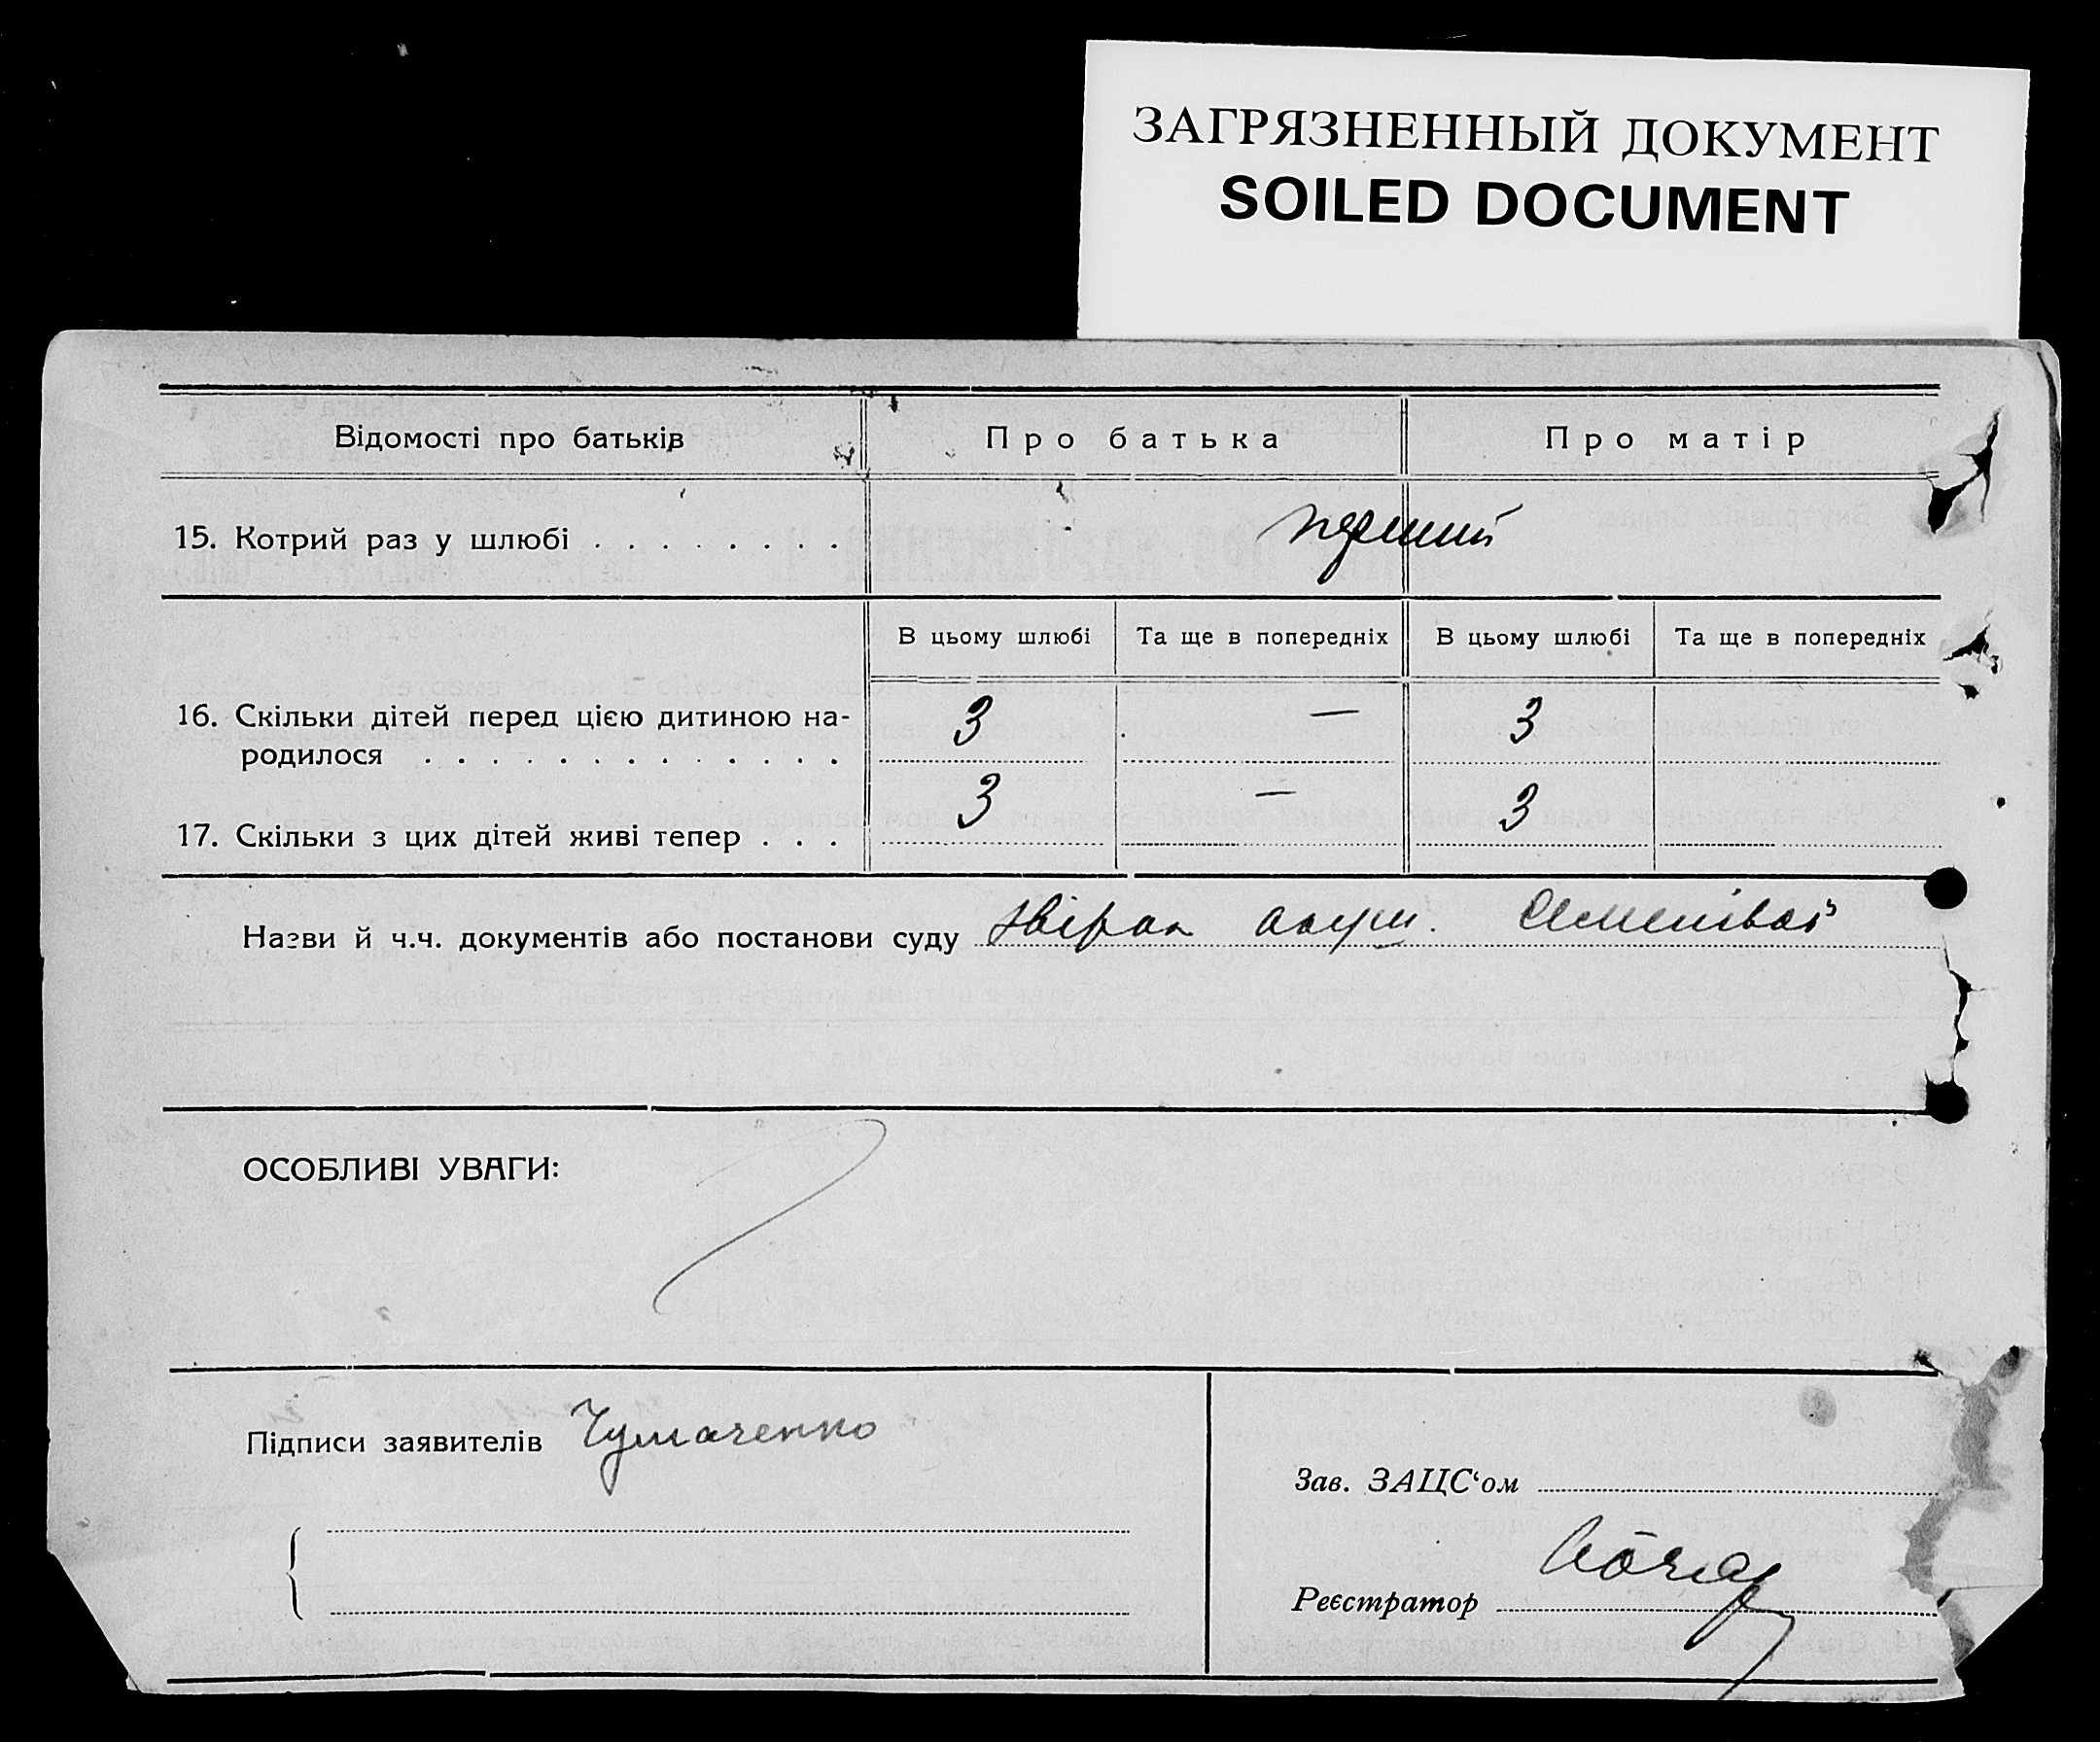 ЗАГРЯЗНЕННЫЙ ДОКУМЕНТ
SOILED DOCUMENT
Відомості про батьків Про батька Про матір
15. Котрий раз у шлюбі . . . . . . . . перший
В цьому шлюбі Та ще в попередніх В цьому шлюбі Та ще в попередніх
16. Скільки дітей перед цією дитиною на-
родилося . . . . . . . . . . . . . 3 — 3
17. Скільки з цих дітей живі тепер . . . 3 — 3
Назви й ч.ч. документів або постанови суду
ОСОБЛИВІ УВАГИ:
Підписи заявителів Чумаченко
Зав. ЗАЦС‘ом
Реєстратор